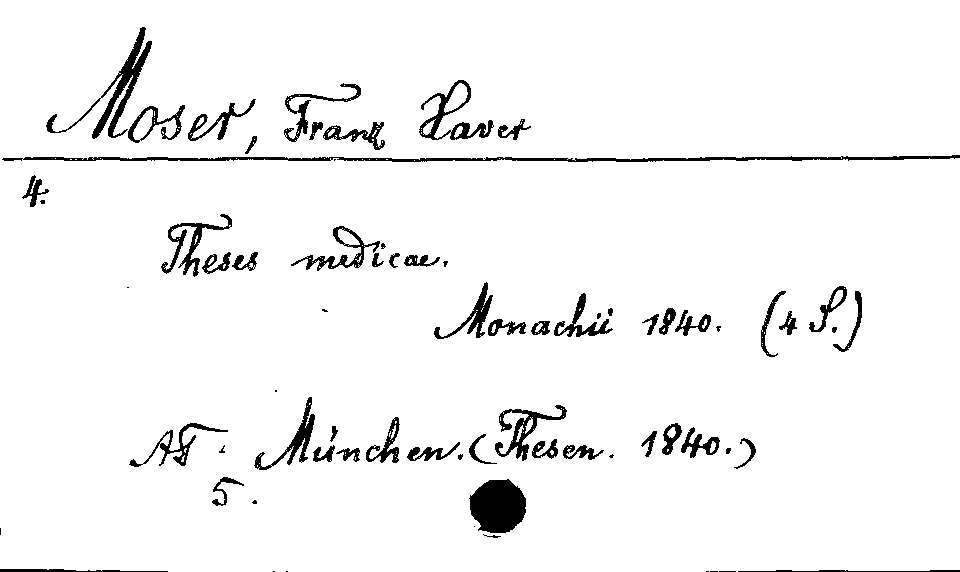 Moser, Franz Xaver
4.
Theses medicae.
Monachii 1840. (4 S.)
AT: München. (Thesen. 1840.)
5.